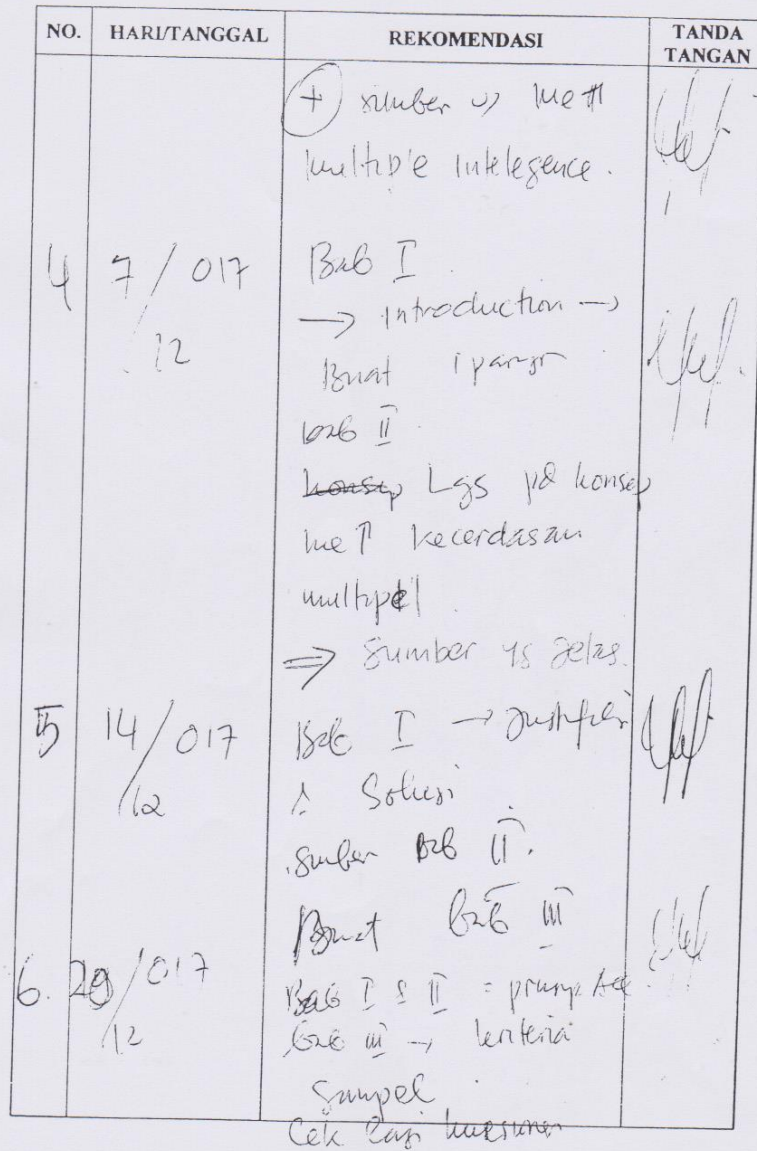 NO. HARI/TANGGAL REKOMENDASI TANDA TANGAN
+ sumber
multiple intelegence.
4 7/12 017 Bab I
→ Introduction →
Buat 1 paragr
bab II
konsep Lgs pd konsep
kecerdasan
multipel
⇒ Sumber yg jelas.
5 14/12 017 Bab I → Justifikasi
& Solusi
Sumber Bab II.
Buat bab III
6. 20/12 017 Bab I & II = prinsip Acc
bab III → kriteria
Sampel
Cek lagi kuesioner